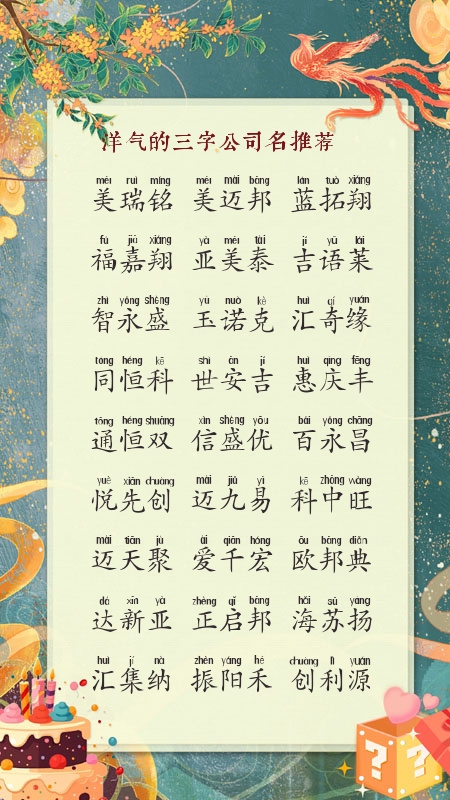 洋气的三字公司名推荐
měi ruì míng měi mài bāng lán tuò xiáng
美瑞铭 美迈邦 蓝拓翔
fú jiā xiáng yà měi tài jí yǔ lái
福嘉翔 亚美泰 吉语莱
zhì yǒng shèng yù nuò kè huì qí yuán
智永盛 玉诺克 汇奇缘
tóng héng kē shì ān jí huì qìng fēng
同恒科 世安吉 惠庆丰
tōng héng shuāng xìn shèng yōu bǎi yǒng chāng
通恒双 信盛优 百永昌
yuè xiān chuàng mài jiǔ yì kē zhōng wàng
悦先创 迈九易 科中旺
mài tiān jù ài qiān hóng ōu bāng diǎn
迈天聚 爱千宏 欧邦典
dá xīn yà zhèng qǐ bāng hǎi sū yáng
达新亚 正启邦 海苏扬
huì jí nà zhèn yáng hé chuàng lì yuán
汇集纳 振阳禾 创利源
? ?